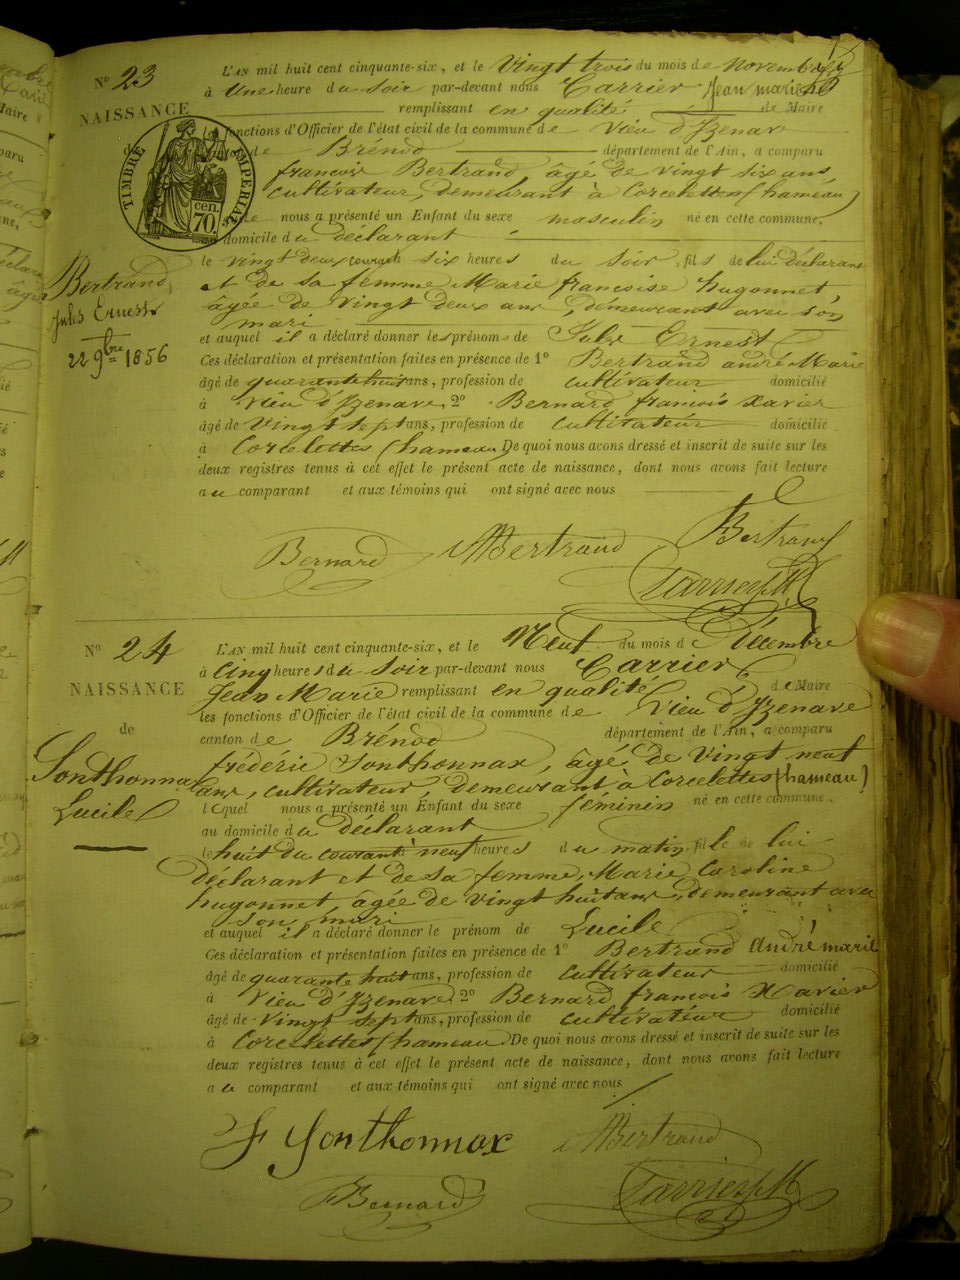 N° 23
NAISSANCE
TIMBRE IMPERIAL
cen. 70.
Bertrand
Jules Ernest
22 9bre 1856
L'AN mil huit cent cinquante-six, et le Vingt trois du mois de novembre
à Une heure du Soir par-devant nous Carrier Jean marie
remplissant en qualité de Maire
les fonctions d'Officier de l'état civil de la commune de Vieu d'Izenave
de Brénod département de l'Ain, a comparu
francois Bertrand, âgé de vingt six ans,
cultivateur, demeurant à Corcelettes (hameau)
nous a présenté un Enfant du sexe masculin né en cette commune,
domicile du déclarant
le vingt deux courant six heures du Soir, fils de lui déclarant
et de sa femme Marie francoise hugonnet,
âgée de Vingt deux ans, demeurant avec son
mari
et auquel il a déclaré donner les prénoms de Jules Ernest
Ces déclaration et présentation faites en présence de 1° Bertrand andré Marie
âgé de quarante huit ans, profession de cultivateur domicilié
à Vieu d'Izenave, 2° Bernard francois Xavier
âgé de Vingt sept ans, profession de cultivateur domicilié
à Corcelettes (hameau) De quoi nous avons dressé et inscrit de suite sur les
deux registres tenus à cet effet le présent acte de naissance, dont nous avons fait lecture
au comparant et aux témoins qui ont signé avec nous
Bernard ABertrand Bertrand
Carrier JM
N° 24
NAISSANCE
de
Sonthonnax
Lucile
L'AN mil huit cent cinquante-six, et le Neuf du mois de Décembre
à Cinq heures du Soir par-devant nous Carrier
Jean Marie remplissant en qualité de Maire
les fonctions d'Officier de l'état civil de la commune de Vieu d'Izenave
canton de Brénod département de l'Ain, a comparu
frédéric Sonthonnax, âgé de vingt neuf
ans, cultivateur, demeurant à Corcelettes (hameau)
lequel nous a présenté un Enfant du sexe féminin né en cette commune.
au domicile du déclarant
le huit du courant à neuf heures du matin, fille de lui
déclarant et de sa femme Marie Caroline
hugonnet, âgée de vingt huit ans, demeurant avec
son mari
et auquel il a déclaré donner le prénom de Lucile
Ces déclaration et présentation faites en présence de 1° Bertrand André marie
âgé de quarante huit ans, profession de cultivateur domicilié
à Vieu d'Izenave 2° Bernard francois Xavier
âgé de Vingt sept ans, profession de cultivateur domicilié
à Corcelettes (hameau) De quoi nous avons dressé et inscrit de suite sur les
deux registres tenus à cet effet le présent acte de naissance, dont nous avons fait lecture
au comparant et aux témoins qui ont signé avec nous
F Sonthonnax ABertrand
FBernard Carrier JM